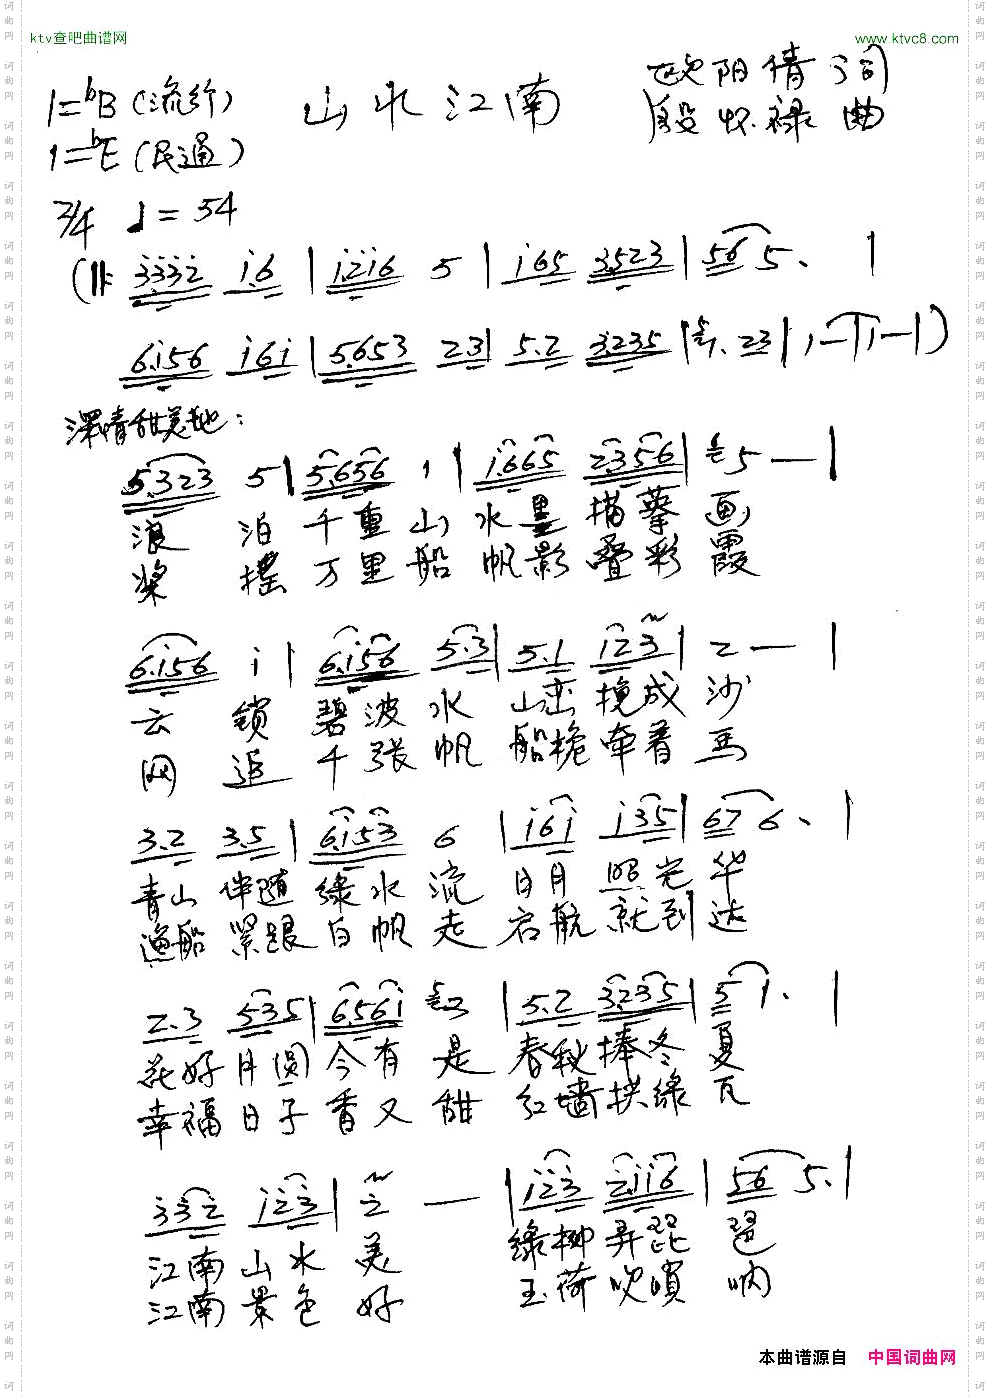 ktv查吧曲谱网 www.ktvc8.com
1=bB（流行） 山水江南 欧阳倩词
段怀禄曲
1=bE（民通）
2/4 ♩=54
(‖: 3332 i.6 | i.2i6 5 | i65 3.523 | 56 5. |
6.i56 i6i | 5.653 2.3 | 5.2 3.235 | 1. 23 | 1 — | 1 — | )
深情甜美地：
5.323 5 | 5.656 1 | i.665 2356 | 5 — |
浪 泊 千重山 水墨 描摹 画
桨 摇 万里船 帆影 叠彩 霞
6.i56 i | 6.i56 5.3 | 5.1 123 | 2 — |
云 锁 碧波水 山峦 挽成 沙
网 追 千张帆 船桅 牵着 马
3.2 3.5 | 6.i53 6 | i6i i35 | 67 6. |
青山 伴随 绿水 流 日月 照光 华
渔船 紧跟 白帆 走 启航 就到 达
2.3 535 | 6.56i 2 | 5.2 3235 | 5 1. |
花好月圆 今有 是 春秋捧冬 夏
幸福日子 香又 甜 红墙拱绿 瓦
332 i23 | 2 — | i23 2.ii6 | 56 5. |
江南山水 美 绿柳弄琵 琶
江南景色 好 玉荷吹唢 呐
本曲谱源自 中国词曲网